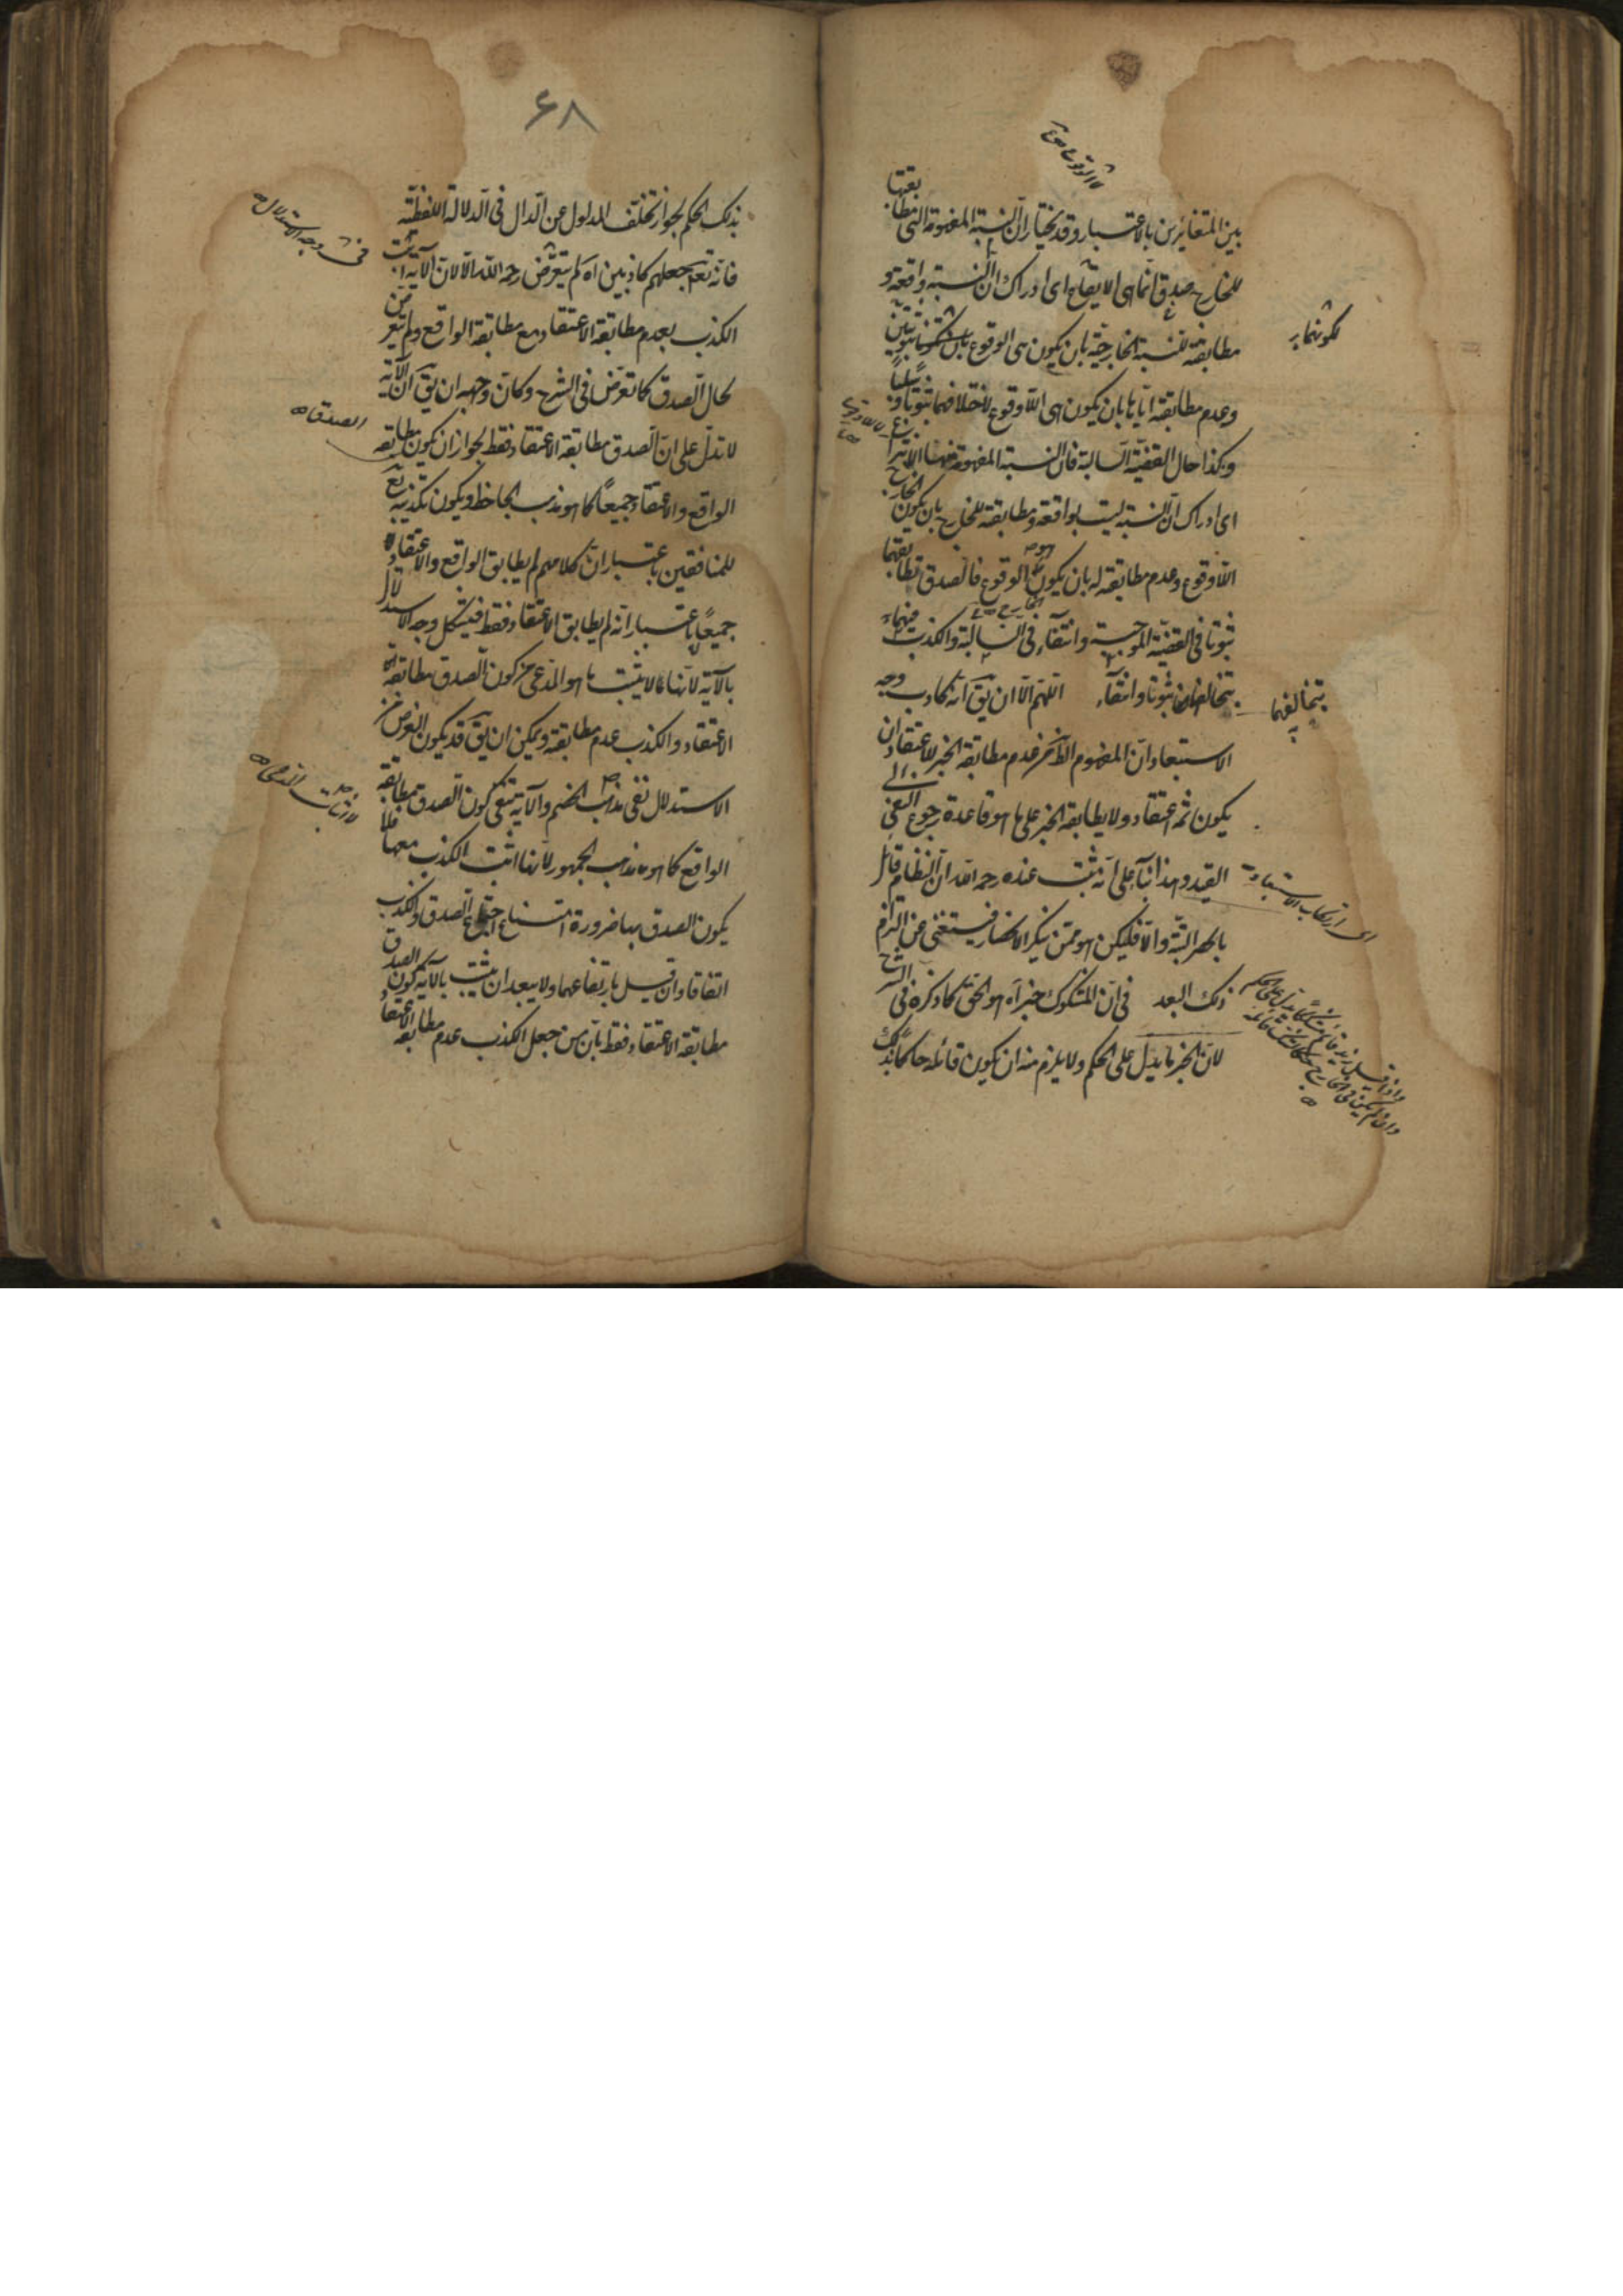 بين المتغايرين بالاعتبار وقد يختار ان النسبة المفهومة التي مطابقتها
للخارج صدق انما هي الايقاع اى ادراك ان النسبة واقعة و
مطابقته للنسبة الخارجية بان يكون هى الوقوع ثبوتيتين
وعدم مطابقته اياها بان يكون هى اللاوقوع لاختلافهما ثبوتا وسلبا
وكذا حال القضية السالبة فان النسبة المفهومة منها الانتزاع
اى ادراك ان النسبة ليست بواقعة ومطابقته للخارج بان يكون الخارج
اللاوقوع وعدم مطابقته له بان يكون هو الوقوع فالصدق تطابقهما
ثبوتا فى القضية الموجبة وانتفاء فى السالبة والكذب فيهما
بتخالفهما ثبوتا وانتفاء اللهم الا ان يق انه كاذب وجه
الاستبعاد ان المفهوم الظ من عدم مطابقة الخبر للاعتقاد ان
يكون ثمه اعتقاد ولا يطابقه الخبر على ما هو قاعدة رجوع النفى الى
القيد وهذا بناء على انه ثبت عنده رحمه الله ان النظام قائل
بالحصر البتة والا فليكن هو ممن ينكر الانحصار فيستغنى عن التزام
ذلك البعد فى ان المشكوك خبر اه هو الحق كما ذكره فى الشرح
لان الخبر ما يدل على الحكم ولا يلزم منه ان يكون قائله حاكما بذلك
لكونهما
بتخالفهما
اى ارتكاب الاستبعاد
۶۸
بذلك الحكم لجواز تخلف المدلول عن الدال فى الدلالة اللفظية
فانه تعه جعلهم كاذبين اه لم يتعرض رحمه الله الا لان الآية اثبتت
الكذب بعدم مطابقة الاعتقاد مع مطابقة الواقع ولم يتعرض
لحال الصدق كما تعرض فى الشرح وكان وجهه ان يق ان الآية
لا تدل على ان الصدق مطابقة الاعتقاد فقط لجواز ان يكون مطابقة
الواقع والاعتقاد جميعا كما هو مذهب الجاحظ ويكون تكذيبه تع
للمنافقين باعتبار ان كلامهم لم يطابق الواقع والاعتقاد
جميعا باعتبار انه لم يطابق الاعتقاد فقط فيشكل وجه الاستدلال
بالآية لانها لا يثبت ما هو المدعى من كون الصدق مطابقة
الاعتقاد والكذب عدم مطابقته ويمكن ان يق قد يكون الغرض من
الاستدلال نفى مذهب الخصم والآية تنفى كون الصدق مطابقة
الواقع كما هو مذهب الجمهور لانها اثبت الكذب معها فلا
يكون الصدق بها ضرورة امتناع اجتماع الصدق والكذب
اتفاقا وان قيل بارتفاعهما ولا يبعد ان يثبت بالآية كون الصدق
مطابقة الاعتقاد فقط بان من جعل الكذب عدم مطابقة الاعتقاد
فى وجه الاستدلال
الصدق
لا اثبات المدعى